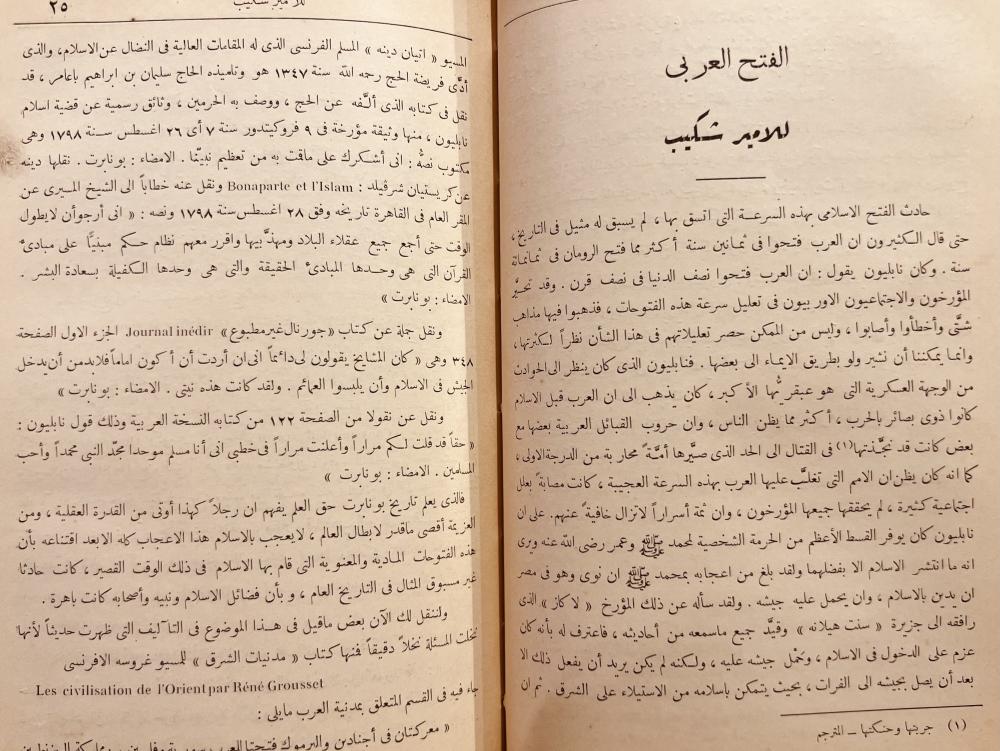 الفتح العربى
للامير شكيب
حادث الفتح الاسلامى بهذه السرعة التى اتسق بها ، لم يسبق له مثيل فى التاريخ ،
حتى قال الكثيرون ان العرب فتحوا فى ثمانين سنة أكثر مما فتح الرومان فى ثمانمائة
سنة . وكان نابليون يقول : ان العرب فتحوا نصف الدنيا فى نصف قرن . وقد تحيَّر
المؤرخون والاجتماعيون الاوربيون فى تعليل سرعة هذه الفتوحات ، فذهبوا فيها مذاهب
شتَّى وأخطأوا وأصابوا ، وليس من الممكن حصر تعليلاتهم فى هذا الشأن نظراً لكثرتها ،
وانما يمكننا أن نشير ولو بطريق الايماء الى بعضها . فنابليون الذى كان ينظر الى الحوادث
من الوجهة العسكرية التى هو عبقريُّها الأكبر ، كان يذهب الى ان العرب قبل الاسلام
كانوا ذوى بصائر بالحرب ، أكثر مما يظن الناس ، وان حروب القبائل العربية بعضها مع
بعض كانت قد نجَّذتها (١) فى القتال الى الحد الذى صيَّرها أمَّة محاربة من الدرجة الاولى ،
كما انه كان يظن ان الامم التى تغلَّب عليها العرب بهذه السرعة العجيبة ، كانت مصابة بعلل
اجتماعية كثيرة ، لم يحققها جميعها المؤرخون ، وان ثمة أسراراً لاتزال خافية عنهم . على ان
نابليون كان يوفر القسط الأعظم من الحرمة الشخصية لمحمد ﷺ وعمر رضى الله عنه ويرى
انه ما انتشر الاسلام الا بفضلهما ولقد بلغ من اعجابه بمحمد ﷺ ان نوى وهو فى مصر
ان يدين بالاسلام ، وان يحمل عليه جيشه . ولقد سأله عن ذلك المؤرخ « لا كاز » الذى
رافقه الى جزيرة « سنت هيلانه » وقيَّد جميع ماسمعه من أحاديثه ، فاعترف له بأنه كان
عزم على الدخول فى الاسلام ، وحَمْل جيشه عليه ، ولكنه لم يكن يريد أن يفعل ذلك الا
بعد أن يصل بجيشه الى الفرات ، بحيث يتمكن بإسلامه من الاستيلاء على الشرق . ثم ان
(١) جربتها وحنكتها ــ المترجم
للامير شكيب
٢٥
المسيو « اتيان دينه » المسلم الفرنسى الذى له المقامات العالية فى النضال عن الاسلام ، والذى
أدَّى فريضة الحج رحمه الله سنة ١٣٤٧ هو وتلميذه الحاج سليمان بن ابراهيم باعامر ، قد
نقل فى كتابه الذى ألَّفه عن الحج ، ووصف به الحرمين ، وثائق رسمية عن قضية اسلام
نابليون ، منها وثيقة مؤرخة فى ٩ فروكيتدور سنة ٧ أى ٢٦ اغسطس سنة ١٧٩٨ وهى
مكتوب نصُّه : انى أشكرك على ماقت به من تعظيم نبيِّنا . الامضاء : بونابرت . نقلها دينه
عن كريستيان شرفيلد : Bonaparte et l'Islam ونقل عنه خطاباً الى الشيخ المسيرى عن
المقر العام فى القاهرة تاريخه وفق ٢٨ اغسطس سنة ١٧٩٨ ونصه : « انى أرجو أن لايطول
الوقت حتى أجمع جميع عقلاء البلاد ومهذَّبيها واقرر معهم نظام حكم مبنيًّا على مبادئ
القرآن التى هى وحدها المبادئ الحقيقة والتى هى وحدها الكفيلة بسعادة البشر .
الامضاء : بونابرت »
ونقل جملة عن كتاب « جورنال غير مطبوع » Journal inédir . الجزء الاول الصفحة
٣٤٨ وهى « كان المشايخ يقولون لى دائماً انى ان أردت أن أكون اماماً فلابد من أن يدخل
الجيش فى الاسلام وأن يلبسوا العمائم . ولقد كانت هذه نيتى . الامضاء : بونابرت »
ونقل عن نقولا من الصفحة ١٢٢ من كتابه النسخة العربية وذلك قول نابليون :
« حقاً قد قلت لكم مراراً وأعلنت مراراً فى خطبى انى أنا مسلم موحد امجّد النبى محمداً وأحب
المسلمين . الامضاء : بونابرت »
فالذى يعلم تاريخ بونابرت حق العلم يفهم ان رجلاً كهذا أوتى من القدرة العقلية ، ومن
العزيمة أقصى ماقدر لابطال العالم ، لايعجب بالاسلام هذا الاعجاب كله الا بعد اقتناعه بأن
هذه الفتوحات المادية والمعنوية التى قام بها الاسلام فى ذلك الوقت القصير ، كانت حادثا
غير مسبوق المثال فى التاريخ العام ، وبأن فضائل الاسلام ونبيه وأصحابه كانت باهرة .
ولننقل لك الآن بعض ماقيل فى هذا الموضوع فى التآليف التى ظهرت حديثاً لأنها
نخلت المسئلة نخلاً دقيقاً فمنها كتاب « مدنيات الشرق » للمسيو غروسه الافرنسى
Les civilisation de l'Orient par Réné Grousset
جاء فيه فى القسم المتعلق بمدنية العرب مايلى :
« معركتان فى أجنادين واليرموك فتحتا للعرب سورية وفلسطين